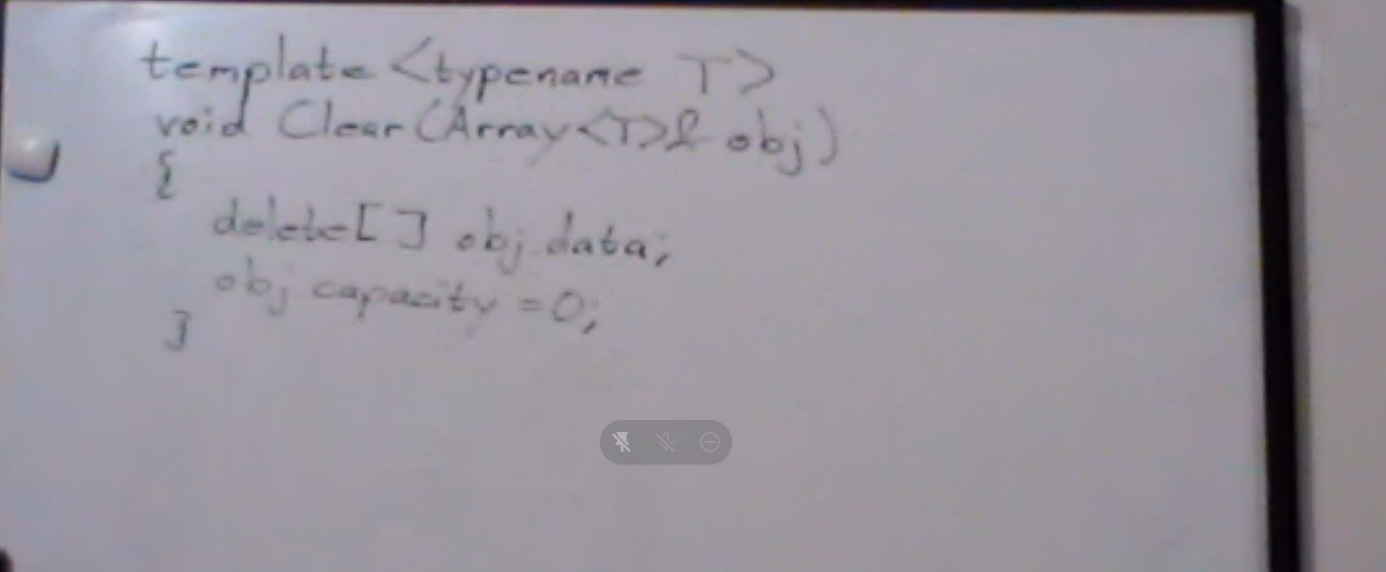 template <typename T>
void Clear(Array<T>& obj)
{
delete[] obj.data;
obj capacity = 0;
}